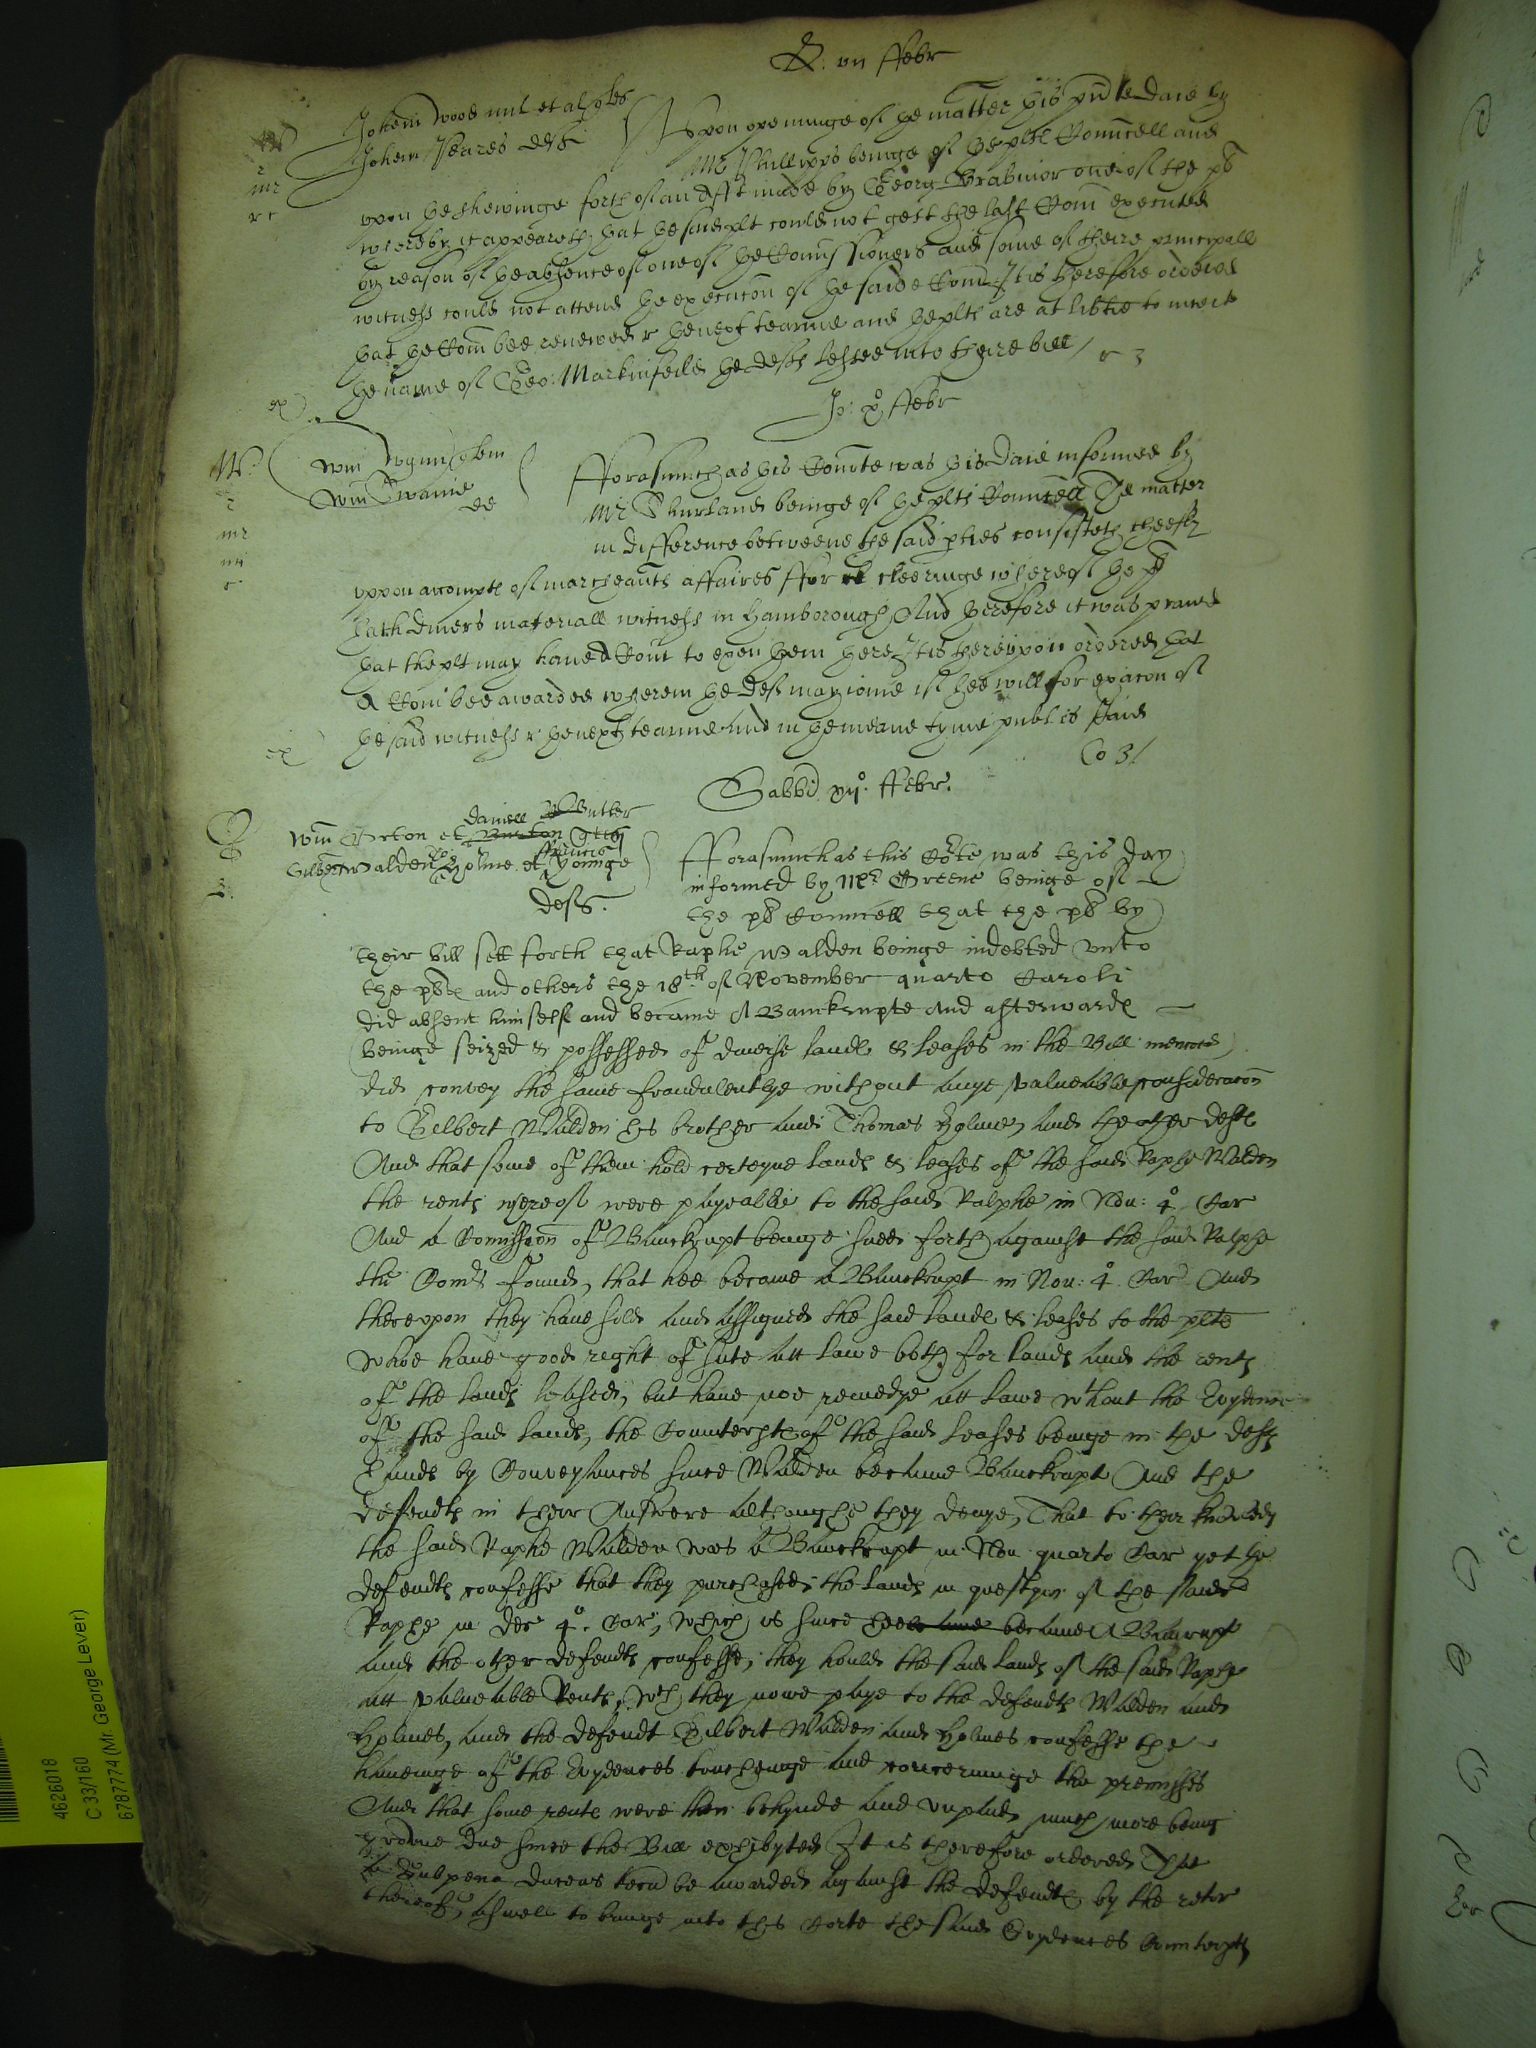 vii ffebr
Johem Wood mil et al quer
Johem Peares deft
Upon openinge of the matter this pnte daie by
Mr Phillipps beinge of the plts Councell and
upon the shewinge forth of an afft made by Georg Brabinor one of the pts
whereby it appeareth that the said plt could not gett the last Com executed
by reason of the absence of one of the Comissioners and some of theire principall
witness could not attend the execucon of the saide Com It is therefore ordered
that the Com bee renewed r the next tearme and the plts are at libtie to incert
the name of Geo: Markinfeild the defts lessee into theire bill
Jo: ffebr
Wm quer
Wm Swanne
de
fforasmuch as this Courte was this daie informed by
Mr Shurland beinge of the plts Councell The matter
in difference betweene the said pties consisteth cheefly
uppon accompts of marchaunts affaires ffor cleeringe whereof the pt
hath divers materiall witness in Hamborough And therefore it was praied
that the plt may have A Com to exen them there It is thereupon ordered that
A Com bee awarded wherein the deft may ioine if hee will for exacon of
the said witness r the next tearme And in the meane tyme publ is staid
Sabbi xii ffebr
Daniell Butler
Wm et Burton quer
ffrancis
Gilbert Walden Tho Holme et Younge
defts.
fforasmuch as this Corte was this day
informed by Mr Greene beinge of
the pts Councell that the pts by
their bill sett forth that Raphe Walden beinge indebted unto
the pts and others the 18th of November quarto Caroli
did absent himself and became A Banckrupte And afterwards
beinge seized & possessed of diverse lands & leases in the Bill menconed
did convey the same fraudulentlye without anye valueable consideracon
to Gilbert Walden his brother and Thomas Holme, and the other defts
And that some of them hold certeyne lands & leases of the said Raphe Walden
the rents whereof were payeable to the said Ralphe in Nou: 4o Car
And a Comission of Banckrupt beinge sued forth against the said Ralphe
the Comrs found, that hee became a Banckrupt in Nou: 4o Car And
thereupon they have sold and assigned the said lands & leases to the plts
whoe have good right of suite att lawe both for lands and the rents
of the lands leased, but have noe remedye att lawe wthout the Evydence
of the said lands, the Counterpts of the said leases beinge in the defts
hands by Conveyances since Walden became Banckrupt And the
defendts in their Answere althoughe they denye, That to their knowledg
the said Raphe Walden was a Banckrupt in Nou quarto Car yet the
defendts confesse that they purchased the lands in question of the said
Raphe in Dec 4o. Car, which is since hee became A Banckrupt
and the other defendts confesse, they hould the said lands of the said Raphe
att valueable Rents, wch they nowe paye to the defendts Walden and
Holmes, and the defendt Gilbert Walden and Holmes confesse the
haveinge of the Evydences touchinge and concerninge the premisses
And that some rents were then behynde and unpaid, much more being
growne due since the Bill exhibyted It is therefore ordered That
a Subpena ducens tecu be awarded against the defendts by the retor
thereof, aswell to bringe into this Corte the said Evydences Counterpts
4626018
C 33/160
6787774 (Mr. George Lever)